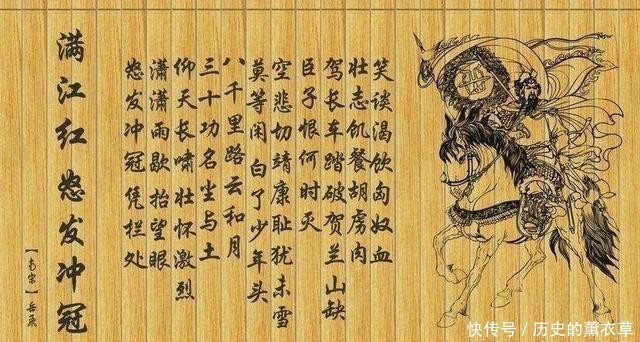 满江红 怒发冲冠
【南宋】岳飞
怒发冲冠凭栏处
潇潇雨歇抬望眼
仰天长啸壮怀激烈
三十功名尘与土
八千里路云和月
莫等闲白了少年头
空悲切靖康耻犹未雪
臣子恨何时灭
驾长车踏破贺兰山缺
壮志饥餐胡虏肉
笑谈渴饮匈奴血
快传号／历史的薰衣草